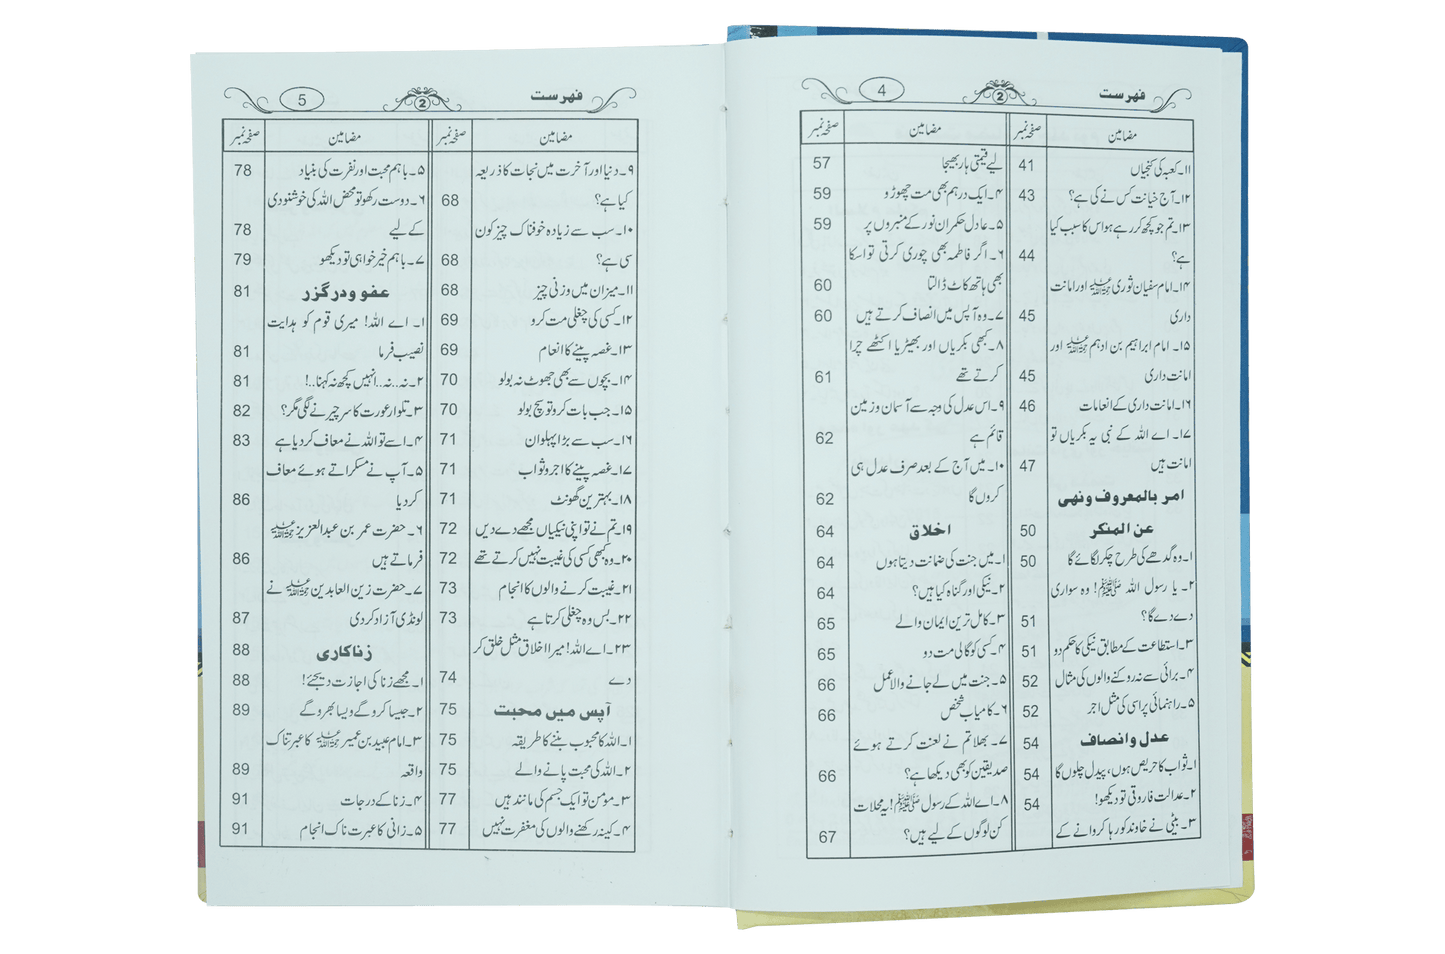 فہرست
2
4
مضامین صفحہ نمبر
۱۱۔ کعبہ کی کنجیاں 41
۱۲۔ آج خیانت کس نے کی ہے؟ 43
۱۳۔ تم جو کچھ کر رہے ہو اس کا سبب کیا
ہے؟ 44
۱۴۔ امام سفیان ثوری رحمہ اللہ اور امانت
داری 45
۱۵۔ امام ابراہیم بن ادہم رحمہ اللہ اور
امانت داری 45
۱۶۔ امانت داری کے انعامات 46
۱۷۔ اے اللہ کے نبی یہ بکریاں تو
امانت ہیں 47
امر بالمعروف ونھی
عن المنکر 50
۱۔ وہ گدھے کی طرح چکر لگائے گا 50
۲۔ یا رسول اللہ ﷺ! وہ سواری
دے دے گا؟ 51
۳۔ استطاعت کے مطابق نیکی کا حکم دو 51
۴۔ برائی سے نہ روکنے والوں کی مثال 52
۵۔ راہنمائی پر اسی کی مثل اجر 52
عدل وانصاف 54
۱۔ ثواب کا حریص ہوں، پیدل چلوں گا 54
۲۔ عدالت فاروقی تو دیکھو! 54
۳۔ بیٹی نے خاوند کو رہا کروانے کے
مضامین صفحہ نمبر
لیے قیمتی ہار بھیجا 57
۴۔ ایک درہم بھی مت چھوڑو 59
۵۔ عادل حکمران نور کے منبروں پر 59
۶۔ اگر فاطمہ بھی چوری کرتی تو اسکا
بھی ہاتھ کاٹ ڈالتا 60
۷۔ وہ آپس میں انصاف کرتے ہیں 60
۸۔ کبھی بکریاں اور بھیڑیا اکٹھے چرا
کرتے تھے 61
۹۔ اس عدل کی وجہ سے آسمان و زمین
قائم ہے 62
۱۰۔ میں آج کے بعد صرف عدل ہی
کروں گا 62
اخلاق 64
۱۔ میں جنت کی ضمانت دیتا ہوں 64
۲۔ نیکی اور گناہ کیا ہیں؟ 64
۳۔ کامل ترین ایمان والے 65
۴۔ کسی کو گالی مت دو 65
۵۔ جنت میں لے جانے والا عمل 66
۶۔ کامیاب شخص 66
۷۔ بھلا تم نے لعنت کرتے ہوئے
صدیقین کو بھی دیکھا ہے؟ 66
۸۔ اے اللہ کے رسول ﷺ! یہ محلات
کن لوگوں کے لیے ہیں؟ 67
فہرست
2
5
مضامین صفحہ نمبر
۹۔ دنیا اور آخرت میں نجات کا ذریعہ
کیا ہے؟ 68
۱۰۔ سب سے زیادہ خوفناک چیز کون
سی ہے؟ 68
۱۱۔ میزان میں وزنی چیز 68
۱۲۔ کسی کی چغلی مت کرو 69
۱۳۔ غصہ پینے کا انعام 69
۱۴۔ بچوں سے بھی جھوٹ نہ بولو 70
۱۵۔ جب بات کرو تو سچ بولو 70
۱۶۔ سب سے بڑا پہلوان 71
۱۷۔ غصہ پینے کا اجر و ثواب 71
۱۸۔ بہترین گھونٹ 71
۱۹۔ تم نے تو اپنی نیکیاں مجھے دے دیں 72
۲۰۔ وہ کبھی کسی کی غیبت نہیں کرتے تھے 72
۲۱۔ غیبت کرنے والوں کا انجام 73
۲۲۔ بس وہ چغلی کرتا ہے 73
۲۳۔ اے اللہ! میرا اخلاق مثل خلق کر
دے 74
آپس میں محبت 75
۱۔ اللہ کا محبوب بننے کا طریقہ 75
۲۔ اللہ کی محبت پانے والے 75
۳۔ مومن تو ایک جسم کی مانند ہیں 77
۴۔ کینہ رکھنے والوں کی مغفرت نہیں 77
مضامین صفحہ نمبر
۵۔ باہم محبت اور نفرت کی بنیاد 78
۶۔ دوست رکھو تو محض اللہ کی خوشنودی
کے لیے 78
۷۔ باہم خیر خواہی تو دیکھو 79
عفو ودرگزر 81
۱۔ اے اللہ! میری قوم کو ہدایت
نصیب فرما 81
۲۔ نہ.. نہ.. انہیں کچھ نہ کہنا..! 81
۳۔ تلوار عورت کا سر چیرنے لگی مگر؟ 82
۴۔ اسے تو اللہ نے معاف کر دیا ہے 83
۵۔ آپ نے مسکراتے ہوئے معاف
کر دیا 86
۶۔ حضرت عمر بن عبدالعزیز رحمہ اللہ
فرماتے ہیں 86
۷۔ حضرت زین العابدین رحمہ اللہ نے
لونڈی آزاد کر دی 87
زناکاری 88
۱۔ مجھے زنا کی اجازت دیجئے! 88
۲۔ جیسا کرو گے ویسا بھرو گے 89
۳۔ امام عبید بن عمیر رحمہ اللہ کا عبرتناک
واقعہ 89
۴۔ زنا کے درجات 91
۵۔ زانی کا عبرت ناک انجام 91